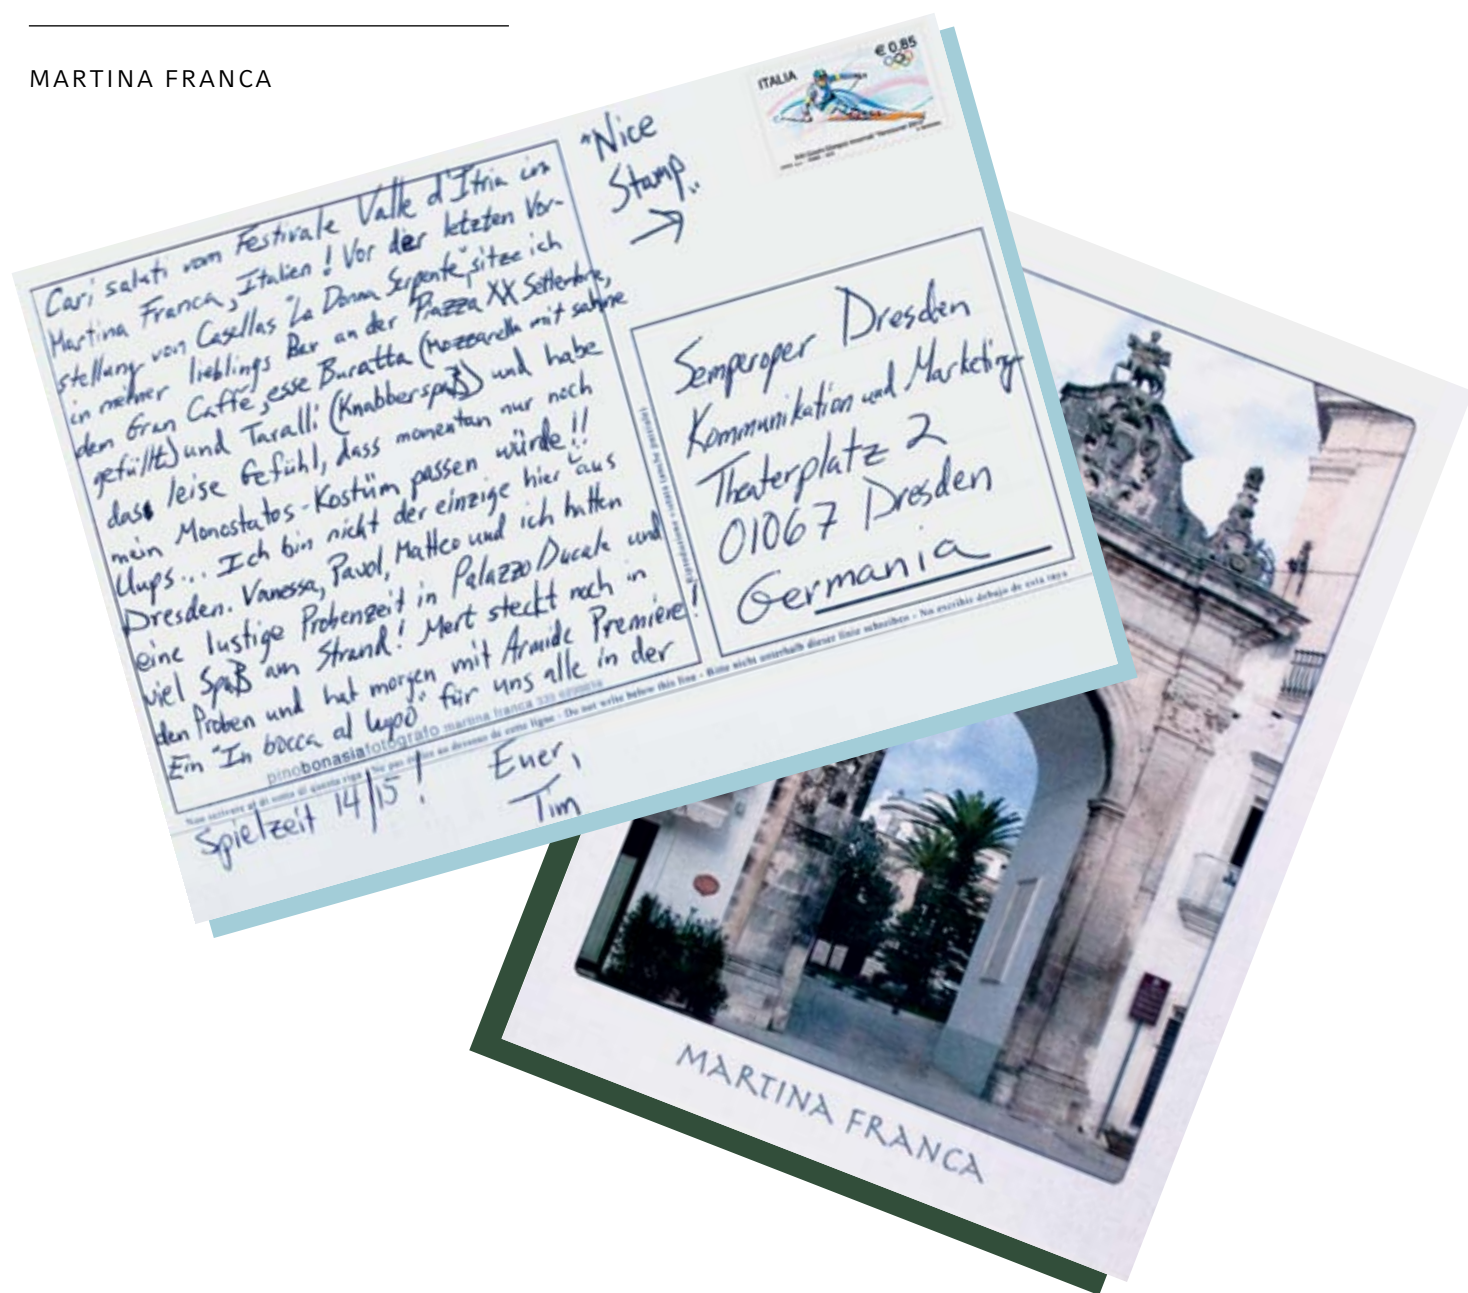 MARTINA FRANCA
Cari saluti vom Festivale Valle d'Itria in
Martina Franca, Italien! Vor der letzten Vor-
stellung von Casellas "La Donna Serpente" sitze ich
in meiner lieblings Bar an der Piazza XX Settembre,
dem Gran Caffè, esse Buratta (Mozzarella mit sahne
gefüllt) und Taralli (Knabberspaß) und habe
das leise Gefühl, dass momentan nur noch
mein Monostatos-Kostüm passen würde!!
Uups... Ich bin nicht der einzige hier aus
Dresden. Vanessa, Pavol, Matteo und ich hatten
eine lustige Probenzeit in Palazzo Ducale und
viel Spaß am Strand! Mert steckt noch in
den Proben und hat morgen mit Armide Premiere!
Ein "In bocca al lupo" für uns alle in der
Spielzeit 14/15!
Euer,
Tim
pinobonasiafotografo martina franca
"Nice
Stamp"
→
ITALIA
€ 0,85
Semperoper Dresden
Kommunikation und Marketing
Theaterplatz 2
01067 Dresden
Germania
Non scrivere al di sotto di questa riga - Ne pas écrire au dessous de cette ligne - Do not write below this line - Bitte nicht unterhalb dieser linie schreiben - No escribir debajo de esta raya
MARTINA FRANCA